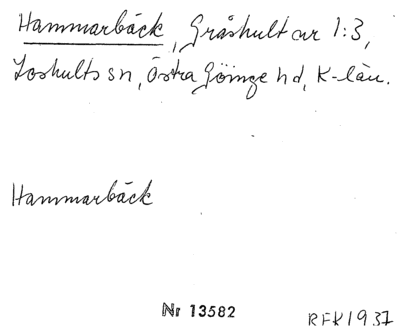 Hammarbäck, Gråshult nr 1:3,
Loshults sn, Östra Göinge hd, K-län.
Hammarbäck
Nr 13582
RFK1937